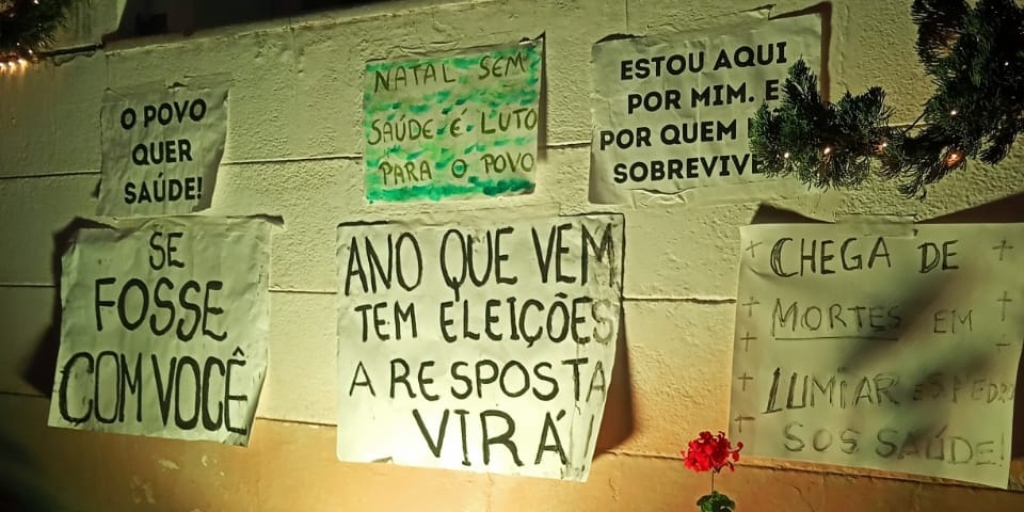 O POVO
QUER
SAÚDE!
NATAL SEM
SAÚDE É LUTO
PARA O POVO
ESTOU AQUI
POR MIM. E
POR QUEM
SE
FOSSE
COM VOCÊ
ANO QUE VEM
TEM ELEIÇÕES
A RESPOSTA
VIRÁ!
CHEGA DE
MORTES EM
LUMIAR
SOS SAÚDE!